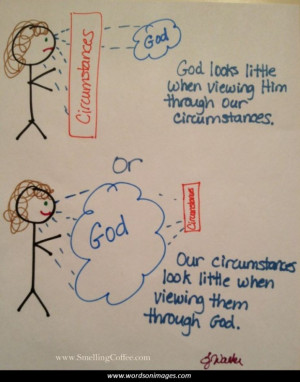 God
Circumstances
God looks little
when viewing Him
through our
circumstances.
or
God
Circumstances
Our circumstances
look little when
viewing them
through God.
www.SmellingCoffee.com
www.wordsonimages.com